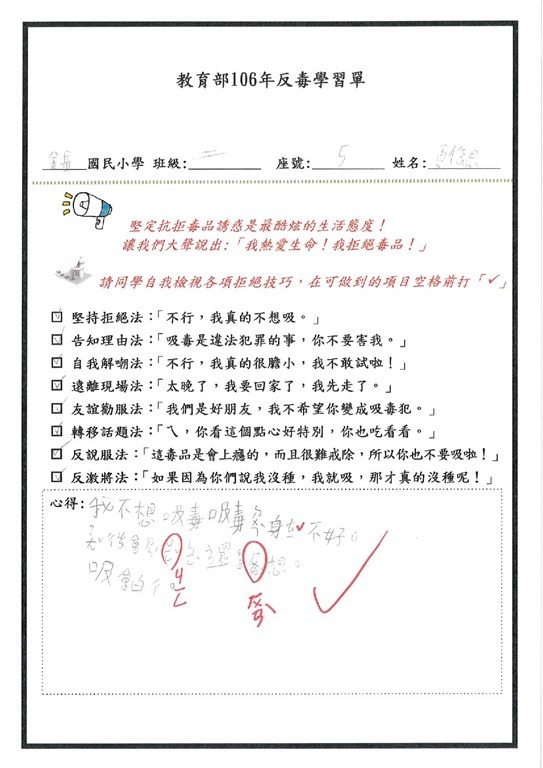 教育部106年反毒學習單
國民小學 班級: 二 座號: 5 姓名:
堅定抗拒毒品誘惑是最酷炫的生活態度！
讓我們大聲說出:「我熱愛生命！我拒絕毒品！」
請同學自我檢視各項拒絕技巧，在可做到的項目空格前打「✓」
堅持拒絕法：「不行，我真的不想吸。」
告知理由法：「吸毒是違法犯罪的事，你不要害我。」
自我解嘲法：「不行，我真的很膽小，我不敢試啦！」
遠離現場法：「太晚了，我要回家了，我先走了。」
友誼勸服法：「我們是好朋友，我不希望你變成吸毒犯。」
轉移話題法：「ㄟ，你看這個點心好特別，你也吃看看。」
反說服法：「這毒品是會上癮的，而且很難戒除，所以你也不要吸啦！」
反激將法：「如果因為你們說我沒種，我就吸，那才真的沒種呢！」
心得: 我不想吸毒吸毒 身 不好。